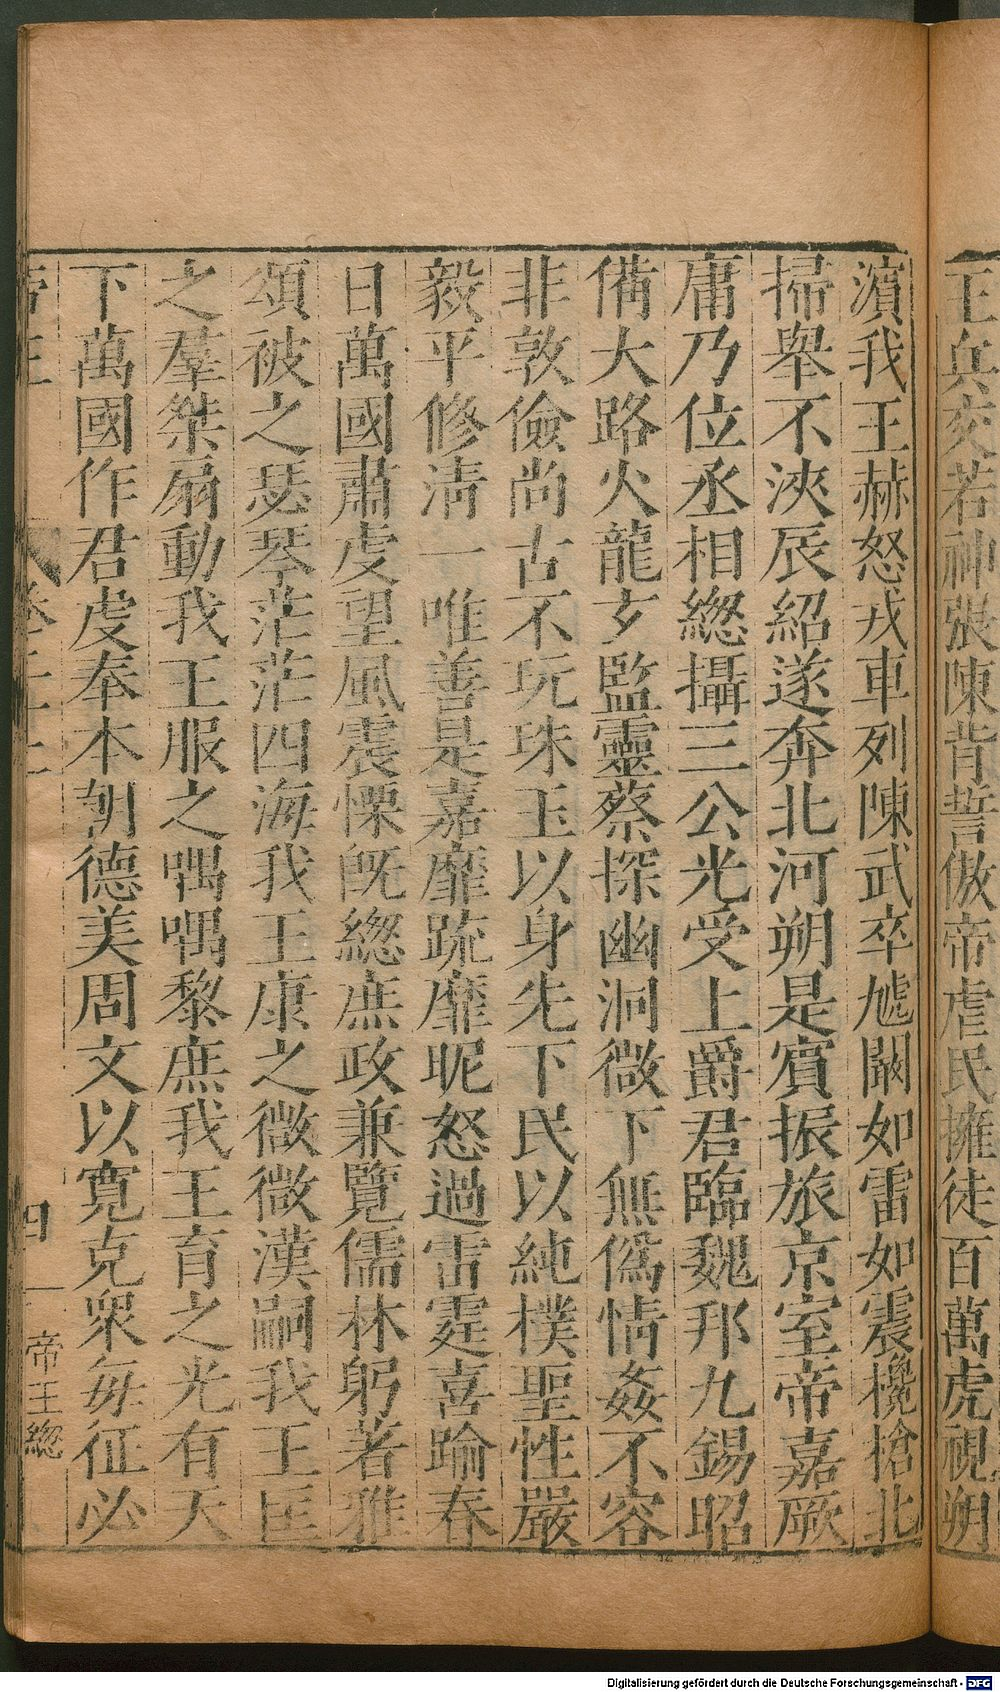 王兵交若神張陳背誓傲帝虐民擁徒百萬虎視朔
濵我王赫怒戎車列陳武卒虓闞如雷如震欃槍北
掃舉不浹辰紹遂奔北河朔是賓振旅京室帝嘉厥
庸乃位丞相緫攝三公光受上爵君臨魏邦九錫昭
備大路火龍𤣥監靈蔡探幽洞微下無僞情姦不容
非敦儉尚古不玩珠玉以身先下民以純樸聖性嚴
毅平修淸一唯善是嘉靡疏靡昵怒過雷霆喜踰春
日萬國肅䖍望風震慄旣緫庶政兼覽儒林躬著雅
頌被之瑟琴茫茫四海我王康之微微漢嗣我王匡
之羣桀扇動我王服之喁喁黎庶我王育之光有天
下萬國作君䖍奉本朝德美周文以寛克衆每征必
四
帝王緫
Digitalisierung gefördert durch die Deutsche Forschungsgemeinschaft - DFG